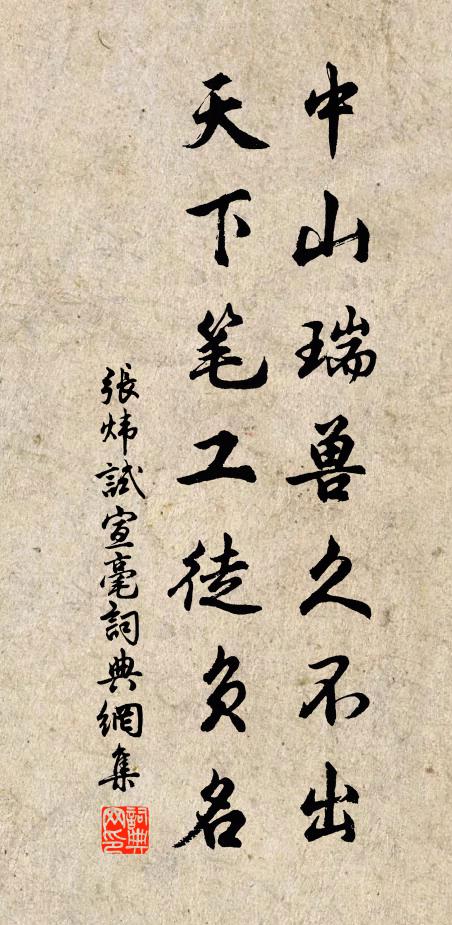 中山瑞兽久不出
天下笔工徒负名
張炜試宣毫詞典網集
詞典网印